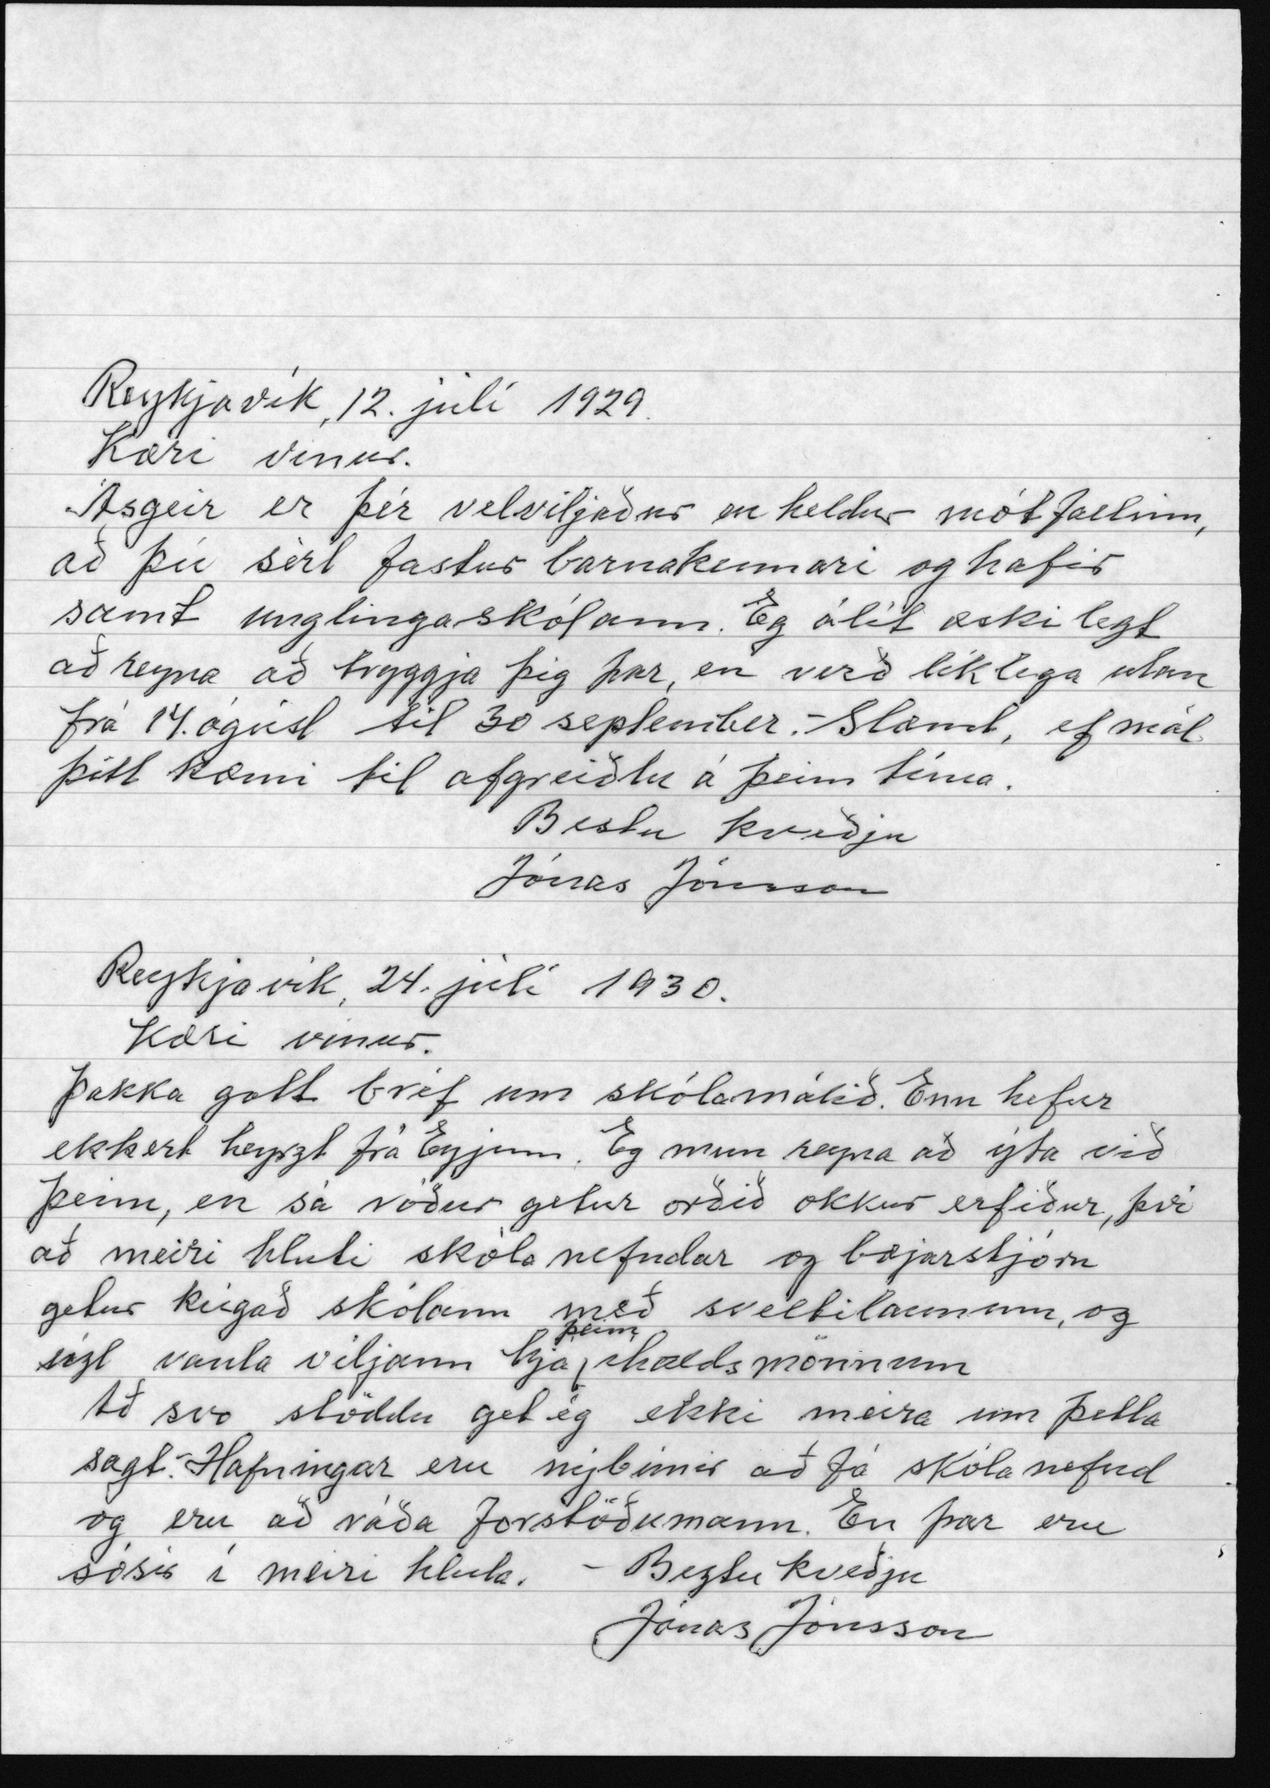 Reykjavík, 12. júlí 1929.
Kæri vinur.
Ásgeir er þér velviljaður en heldur mótfallinn,
að þú sért fastur barnakennari og hafir
samt unglingaskólann. Ég álít æskilegt
að reyna að tryggja þig þar, en verð líklega utan
frá 14. ágúst til 30 september. - Slæmt, ef mál
þitt kæmi til afgreiðslu á þeim tíma.
Bestu kveðju
Jónas Jónsson
Reykjavík, 24. júlí 1930.
Kæri vinur.
Þakka gott bréf um skólamálið. Enn hefur
ekkert heyrzt frá Eyjum. Ég mun reyna að ýta við
þeim, en sá róður getur orðið okkur erfiður, því
að meiri hluti skólanefndar og bæjarstjórn
getur kúgað skólann með sveltilaunum, og
ekki vanta viljann hjá þeim íhaldsmönnum
Að svo stöddu get ég ekki meira um þetta
sagt. - Hafningar eru nýbúnir að fá skólanefnd
og eru að ráða forstöðumann. En þar eru
sósir í meiri hluta. - Beztu kveðju
Jónas Jónsson